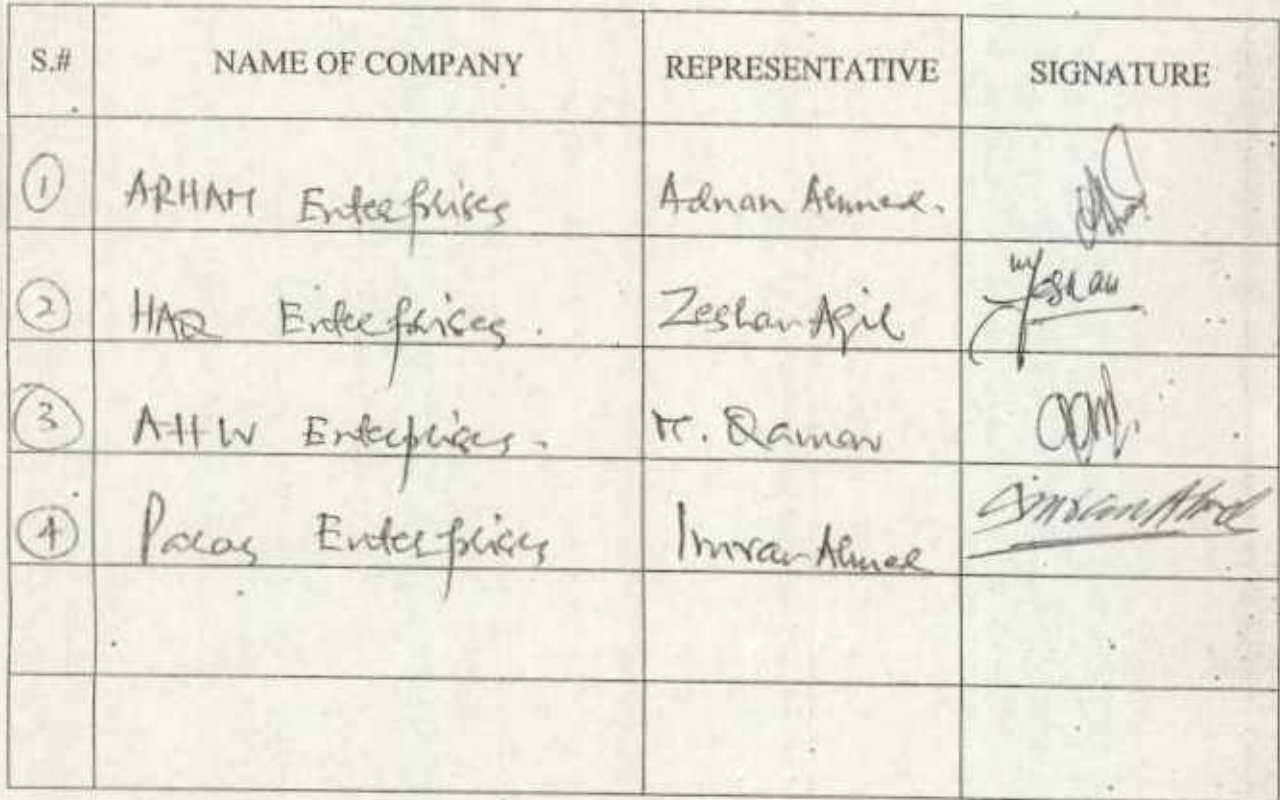 S.# NAME OF COMPANY REPRESENTATIVE SIGNATURE
1 ARHAM Enterprises Adnan Ahmed.
2 HAQ Enterprises. Zeshan Aqil
3 AHW Enterprises. M.
4 Paras Enterprises Imran Ahmed Imran Ahmed